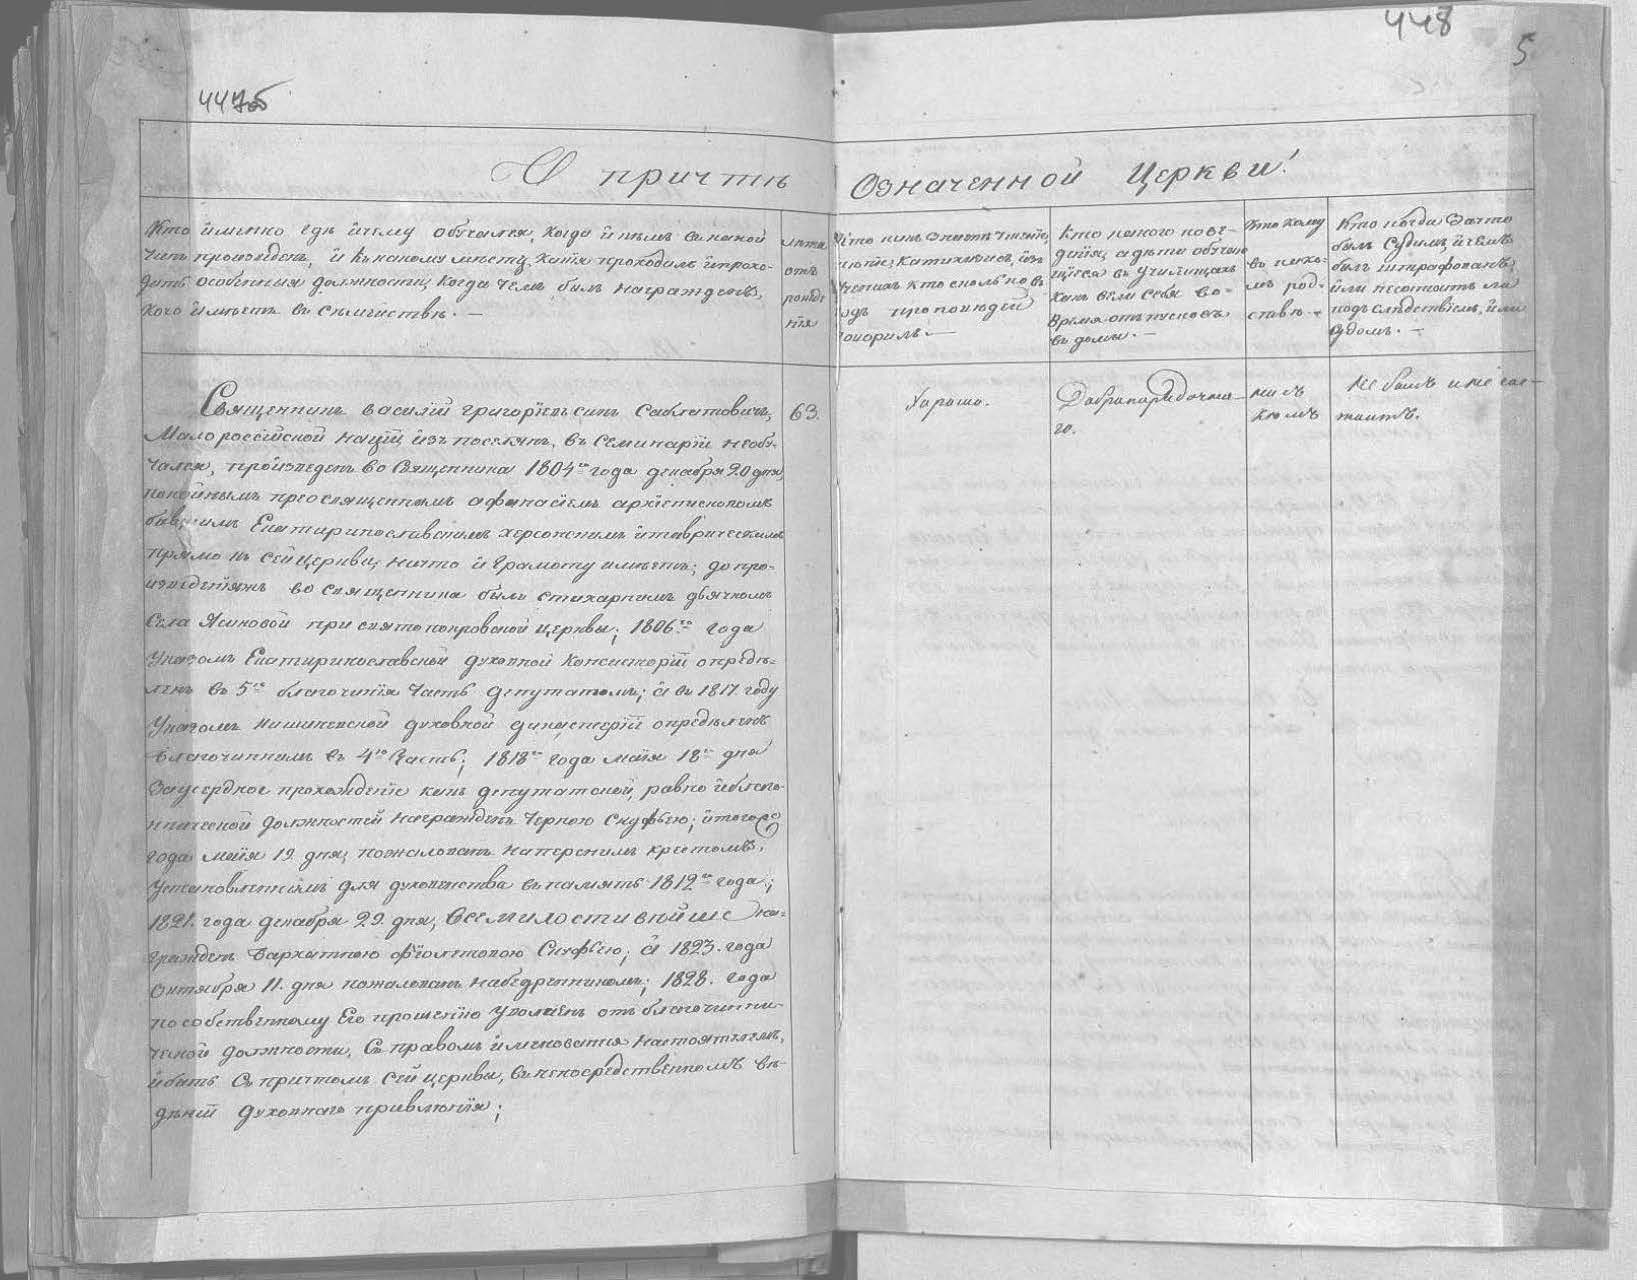 447об
448
5
О причтѣ Означенной Церкви!
Кто именно гдѣ и чему обучался, когда и кѣмъ въ какой
чинъ произведенъ, и къ какому мѣсту, какiя проходилъ и прохо-
дитъ особенныя должности, когда чемъ былъ награжденъ,
кого имѣетъ въ сѣмействѣ. —
лѣта
отъ
рожде
нiя
Кто какъ знаетъ чтенiе,
пѣнiе, катихизисъ, изъ
ученыхъ кто сколько въ
годъ проповѣдей
говорилъ. —
Кто какого пове-
денiя, а дѣти обучаю
щiеся въ училищахъ
какъ вели себя во-
время отпусковъ
въ домы. —
Кто кому
въ како-
мъ род-
ствѣ. —
Кто когда за что
былъ судимъ, и чемъ
былъ штрафованъ,
или несостоитъ ли
подъ слѣдствiемъ, или
судомъ. —
Священникъ Василiй Григорiевъ сынъ Саблатовичъ,
Малороссiйской нацiи изъ поселянъ, въ Семинарiи необу-
чался, произведенъ во Священника 1804го года декабря 20 дня,
покойнымъ преосвященнымъ Афанасiемъ архiепископомъ
бывшимъ Екатеринославскимъ херсонскимъ и таврическимъ
прямо къ сей церкви, на что и грамоту имѣетъ; до про-
изведенiя во священника былъ стихарнымъ дьячкомъ
Села Ясиновой при святопокровской церквы; 1806го года
Указомъ Екатиринославской духовной Консисторiи опредѣ-
ленъ въ 5ю благочинiя часть депутатомъ; а въ 1817 году
Указомъ Кишиневской духовной дикастерiи опредѣленъ
благочиннымъ въ 4ю часть; 1818го года маiя 18го дня
За усердное прохожденiе какъ депутатской, равно и благо-
чинической должностей награжденъ черною скуфьею; и того же
года маiя 19. дня, пожалованъ наперснымъ крестомъ,
установленнымъ для духовенства въ память 1812го года;
1821. года декабря 29. дня, Всемилостивѣйше на-
гражденъ бархатною фiолетовою Скуфьею, а 1823. года
Октября 11. дня пожалованъ набедренникомъ; 1828. года
по собственному Его прошенiю уволенъ отъ благочинни-
ческой должности, съ правомъ именоватся настоятелемъ,
и быть съ причтомъ сей церквы, въ непосредственномъ вѣ-
дѣнiи духовнаго правленiя;
63.
Хорошо.
Добропорядочна-
го.
ни съ
кѣмъ
Не былъ и не сос-
тоитъ.